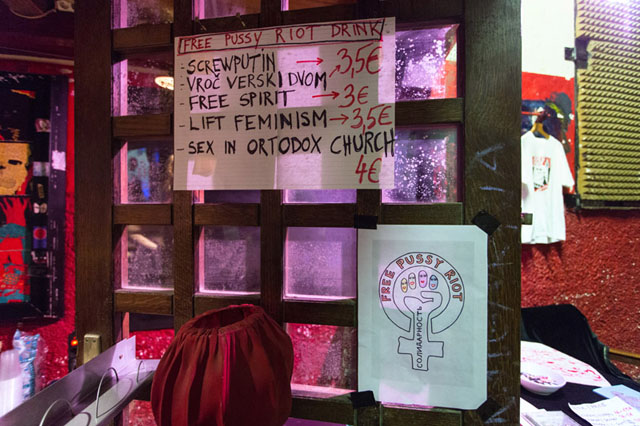 FREE PUSSY RIOT DRINK
- SCREWPUTIN → 3,5€
- VROČ VERSKI DVOM → 3,5€
- FREE SPIRIT → 3€
- LIFT FEMINISM → 3,5€
- SEX IN ORTODOX CHURCH
4€
FREE PUSSY RIOT
СОЛИДАРНОСТЬ